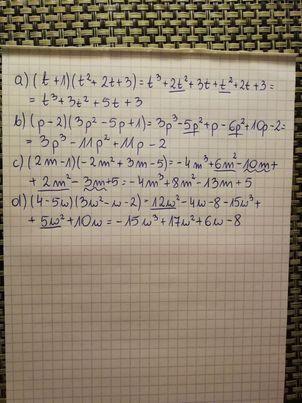 a) (t+1)(t²+2t+3)=t³+2t²+3t+t²+2t+3=
= t³+3t²+5t+3
b) (p-2)(3p²-5p+1)=3p³-5p²+p-6p²+10p-2=
= 3p³-11p²+11p-2
c) (2m-1)(-2m²+3m-5)=-4m³+6m²-10m+
+2m²-3m+5=-4m³+8m²-13m+5
d) (4-5w)(3w²-w-2)=12w²-4w-8-15w³+
+5w²+10w=-15w³+17w²+6w-8